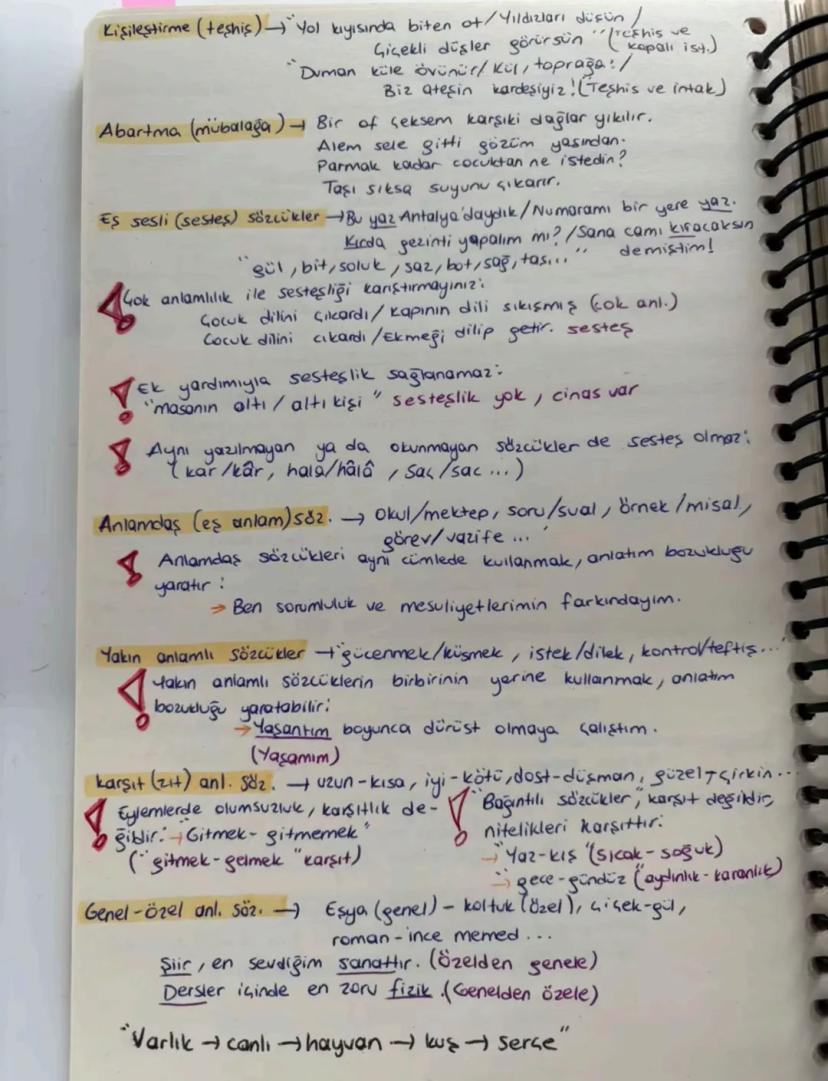 Kişileştirme (teşhis) → "Yol kıyısında biten ot / Yıldızları düşün /
Çiçekli düşler görürsün" (Teşhis ve kapalı ist.)
"Duman küle övünür / Kül, toprağa: /
Biz ateşin kardeşiyiz! (Teşhis ve intak)
Abartma (mübalağa) → Bir of çeksem karşıki dağlar yıkılır.
Alem sele gitti gözüm yaşından.
Parmak kadar cocuktan ne istedin?
Taşı sıksa suyunu çıkarır.
Eş sesli (sesteş) sözcükler → Bu yaz Antalya'daydık / Numaramı bir yere yaz.
Kırda gezinti yapalım mı? / Sana camı kıracaksın
demiştim!
"gül, bit, soluk, saz, bot, sağ, tası..."
Çok anlamlılık ile sesteşliği karıştırmayınız:
Çocuk dilini çıkardı / kapının dili sıkışmış (çok anl.)
Cocuk dilini cıkardı / Ekmeği dilip getir. sesteş
Ek yardımıyla sesteşlik sağlanamaz:
"masanın altı / altı kişi" sesteşlik yok, cinas var
Aynı yazılmayan ya da okunmayan sözcükler de sesteş olmaz:
(kar/kâr, hala/hâlâ, saç/sac ...)
Anlamdaş (eş anlam) söz. → Okul/mektep, soru/sual, örnek/misal,
görev/vazife ...
Anlamdaş sözcükleri aynı cümlede kullanmak, anlatım bozukluğu
yaratır:
→ Ben sorumluluk ve mesuliyetlerimin farkındayım.
Yakın anlamlı sözcükler → "gücenmek/küsmek, istek/dilek, kontrol/teftiş..."
Yakın anlamlı sözcüklerin birbirinin yerine kullanmak, anlatım
bozukluğu yaratabilir:
→ Yaşantım boyunca dürüst olmaya çalıştım.
(Yaşamım)
karşıt (zıt) anl. söz. → uzun-kısa, iyi-kötü, dost-düşman, güzel-çirkin...
Eylemlerde olumsuzluk, karşıtlık de-
ğildir: → Gitmek-gitmemek"
("gitmek-gelmek "karşıt)
"Bağıntılı sözcükler", karşıt değildir,
nitelikleri karşıttır:
→ "Yaz-kış "(sıcak-soğuk)
→ "gece-gündüz ("aydınlık-karanlık)
Genel-özel anl. söz. → Eşya (genel) - koltuk (özel), çiçek-gül,
roman-ince memed ...
Şiir, en sevdiğim sanattır. (Özelden genele)
Dersler içinde en zoru fizik. (Genelden özele)
"Varlık → canlı → hayvan → kuş → serçe"